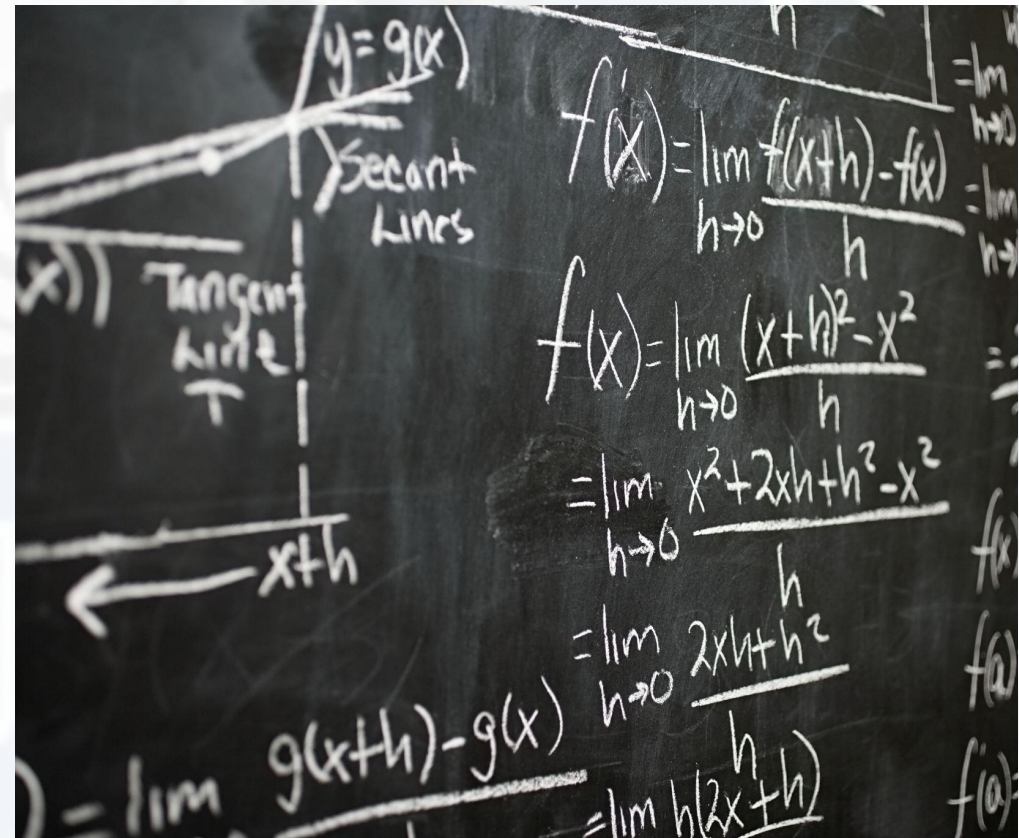 y=g(x)
Secant
Lines
x))
Tangent
Line
T
x+h
) = lim g(x+h)-g(x)
h
f'(x)=lim f(x+h)-f(x)
h→0 h
f(x)=lim (x+h)²-x²
h→0 h
=lim x²+2xh+h²-x²
h→0 h
=lim 2xh+h²
h→0 h
=lim h(2x+h)
=lim
h→0
=lim
h→
=
f(x)
f(a)
f'(a)=